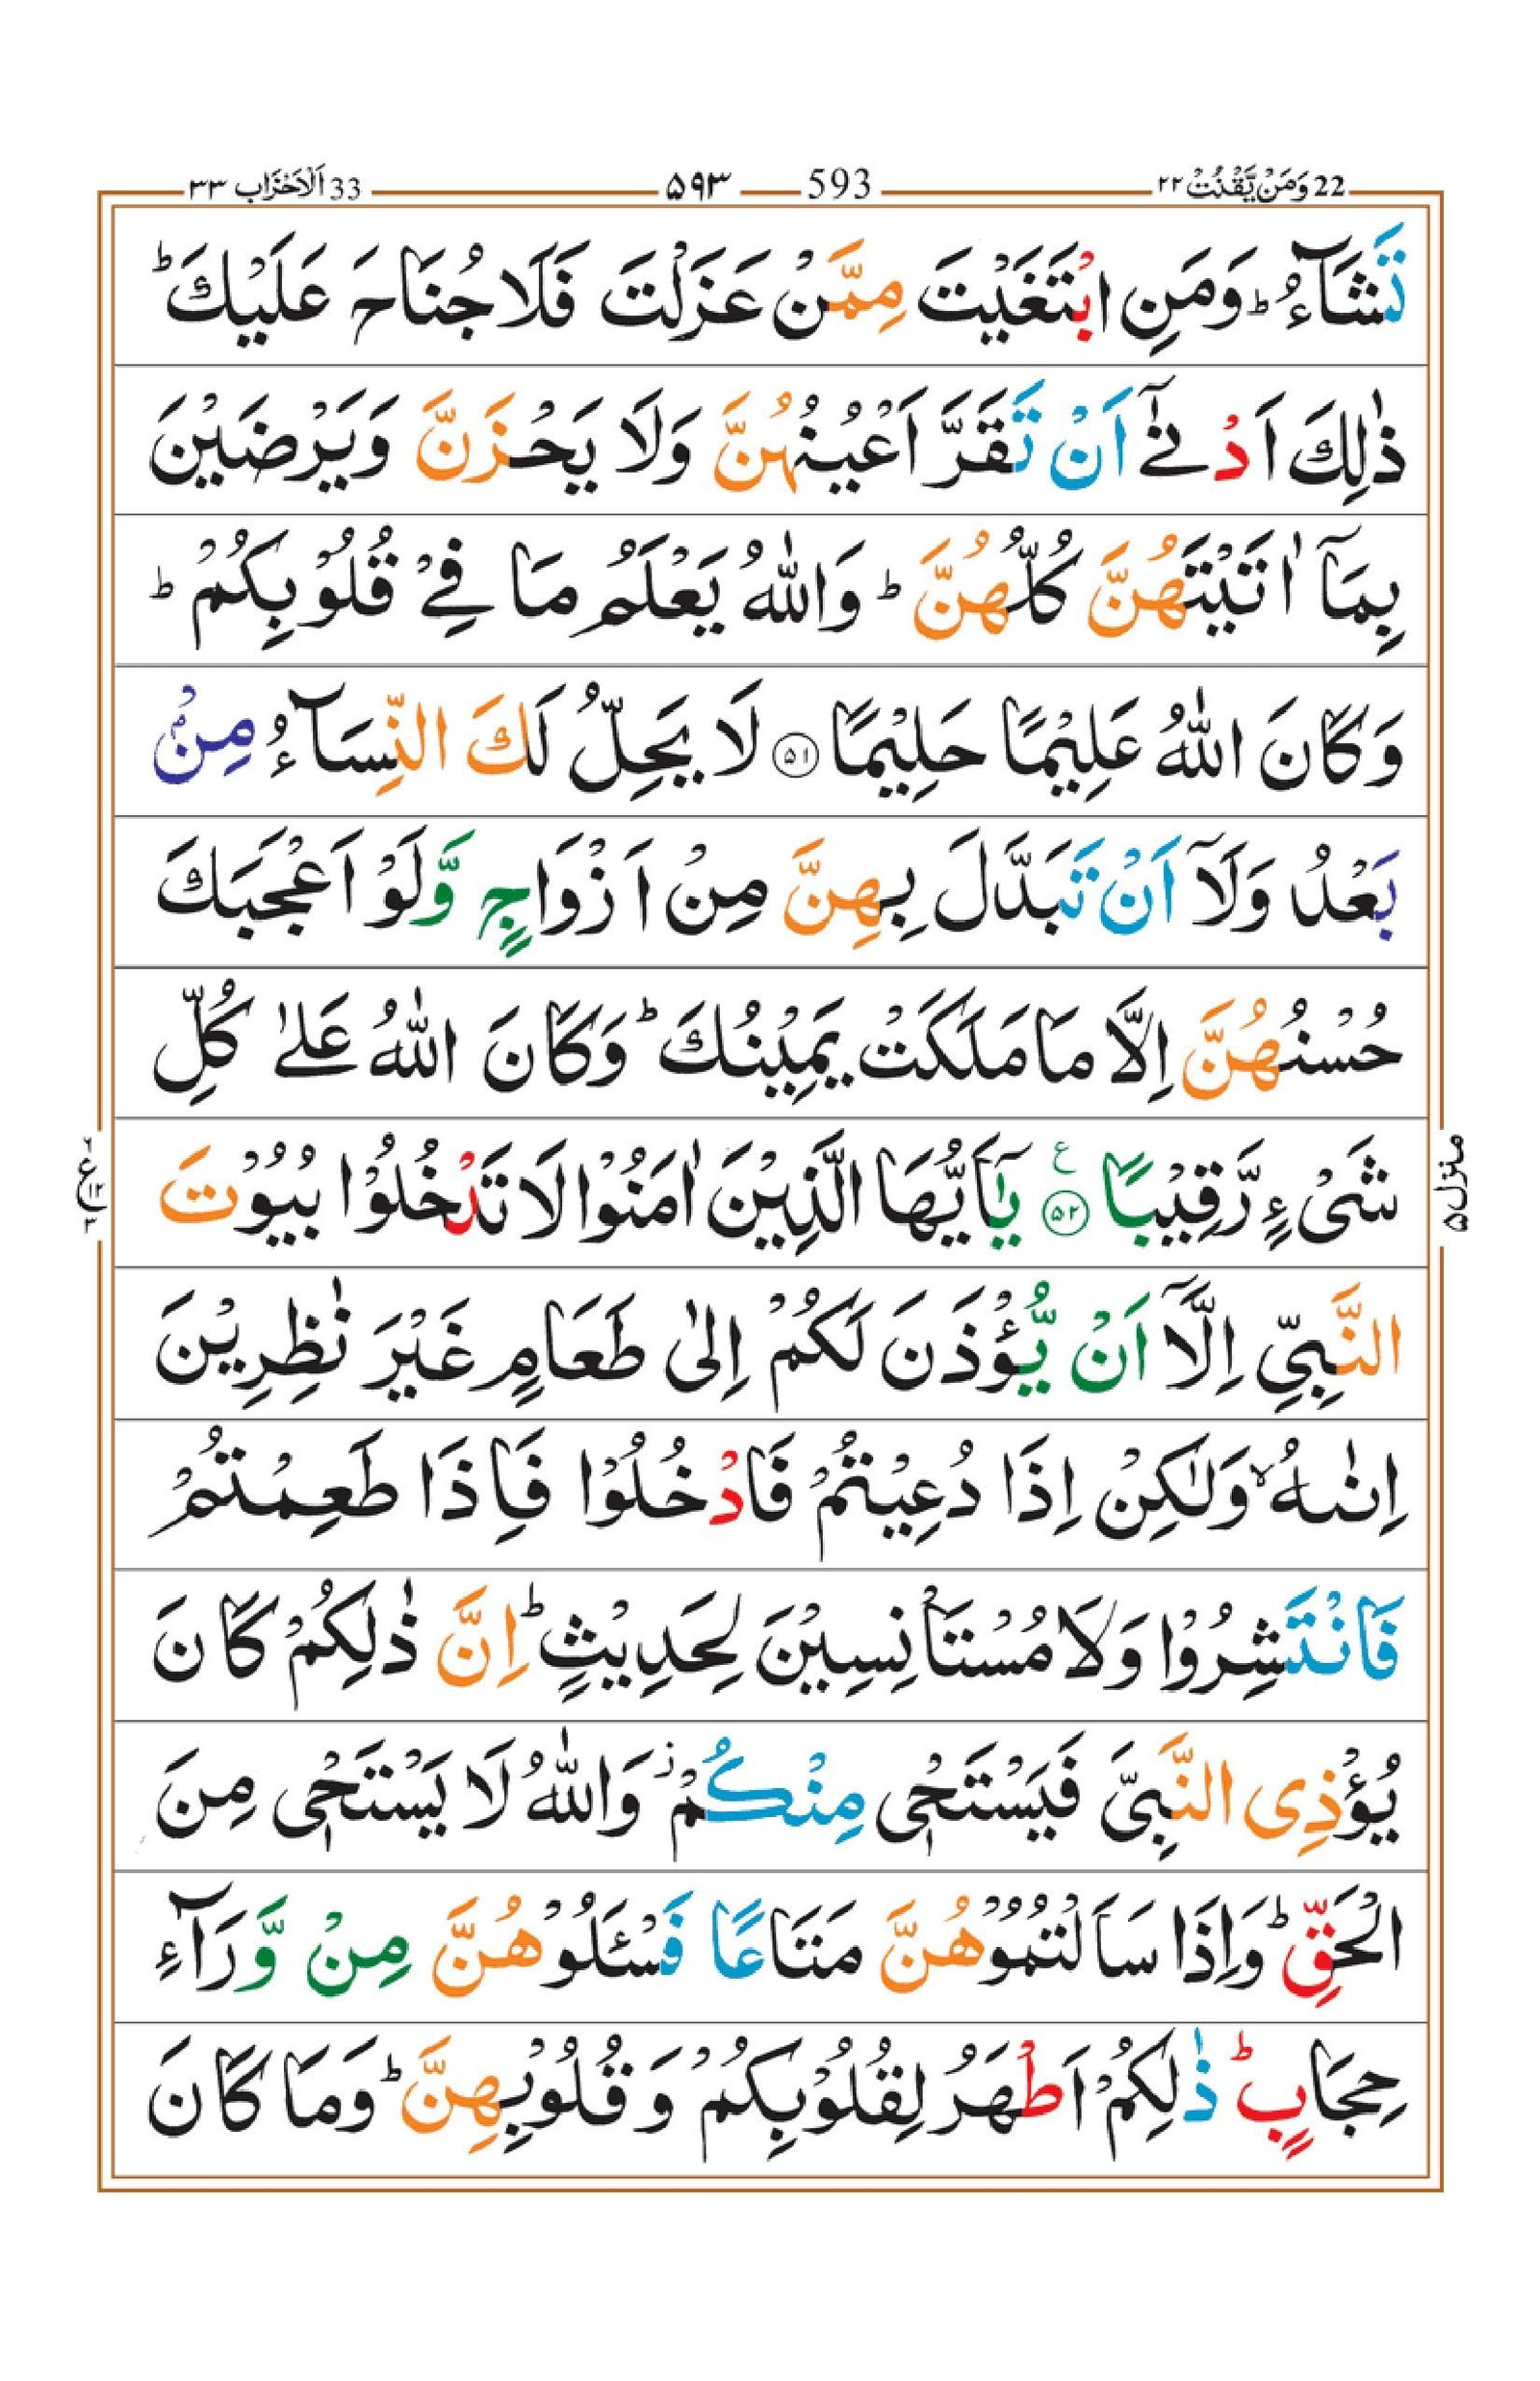 22 وَمَنْ يَّقْنُتْ ۲۲ 593 ۵۹۳ 33 اَلْاَحْزَاب ۳۳
تَشَآءُ ؕ وَمَنِ ابْتَغَيْتَ مِمَّنْ عَزَلْتَ فَلَا جُنَاحَ عَلَيْكَ ؕ
ذٰلِكَ اَدْنٰٓے اَنْ تَقَرَّ اَعْيُنُهُنَّ وَلَا يَحْزَنَّ وَيَرْضَيْنَ
بِمَآ اٰتَيْتَهُنَّ كُلُّهُنَّ ؕ وَاللّٰهُ يَعْلَمُ مَا فِيْ قُلُوْبِكُمْ ؕ
وَكَانَ اللّٰهُ عَلِيْمًا حَلِيْمًا ۵۱ لَا يَحِلُّ لَكَ النِّسَآءُ مِنْۢ
بَعْدُ وَلَآ اَنْ تَبَدَّلَ بِهِنَّ مِنْ اَزْوَاجٍ وَّلَوْ اَعْجَبَكَ
حُسْنُهُنَّ اِلَّا مَا مَلَكَتْ يَمِيْنُكَ ؕ وَكَانَ اللّٰهُ عَلٰے كُلِّ
شَیْءٍ رَّقِيْبًا ۵۲ ع يٰۤاَيُّهَا الَّذِيْنَ اٰمَنُوْا لَا تَدْخُلُوْا بُيُوْتَ
النَّبِيِّ اِلَّآ اَنْ يُّؤْذَنَ لَكُمْ اِلٰی طَعَامٍ غَيْرَ نٰظِرِيْنَ
اِنٰىهُ ۙ وَلٰكِنْ اِذَا دُعِيْتُمْ فَادْخُلُوْا فَاِذَا طَعِمْتُمْ
فَانْتَشِرُوْا وَلَا مُسْتَاْنِسِيْنَ لِحَدِيْثٍ ؕ اِنَّ ذٰلِكُمْ كَانَ
يُؤْذِی النَّبِیَّ فَيَسْتَحْیٖ مِنْكُمْ ؗ وَاللّٰهُ لَا يَسْتَحْیٖ مِنَ
الْحَقِّ ؕ وَاِذَا سَاَلْتُمُوْهُنَّ مَتَاعًا فَسْـَٔلُوْهُنَّ مِنْ وَّرَآءِ
حِجَابٍ ؕ ذٰلِكُمْ اَطْهَرُ لِقُلُوْبِكُمْ وَقُلُوْبِهِنَّ ؕ وَمَا كَانَ
منزل ۵